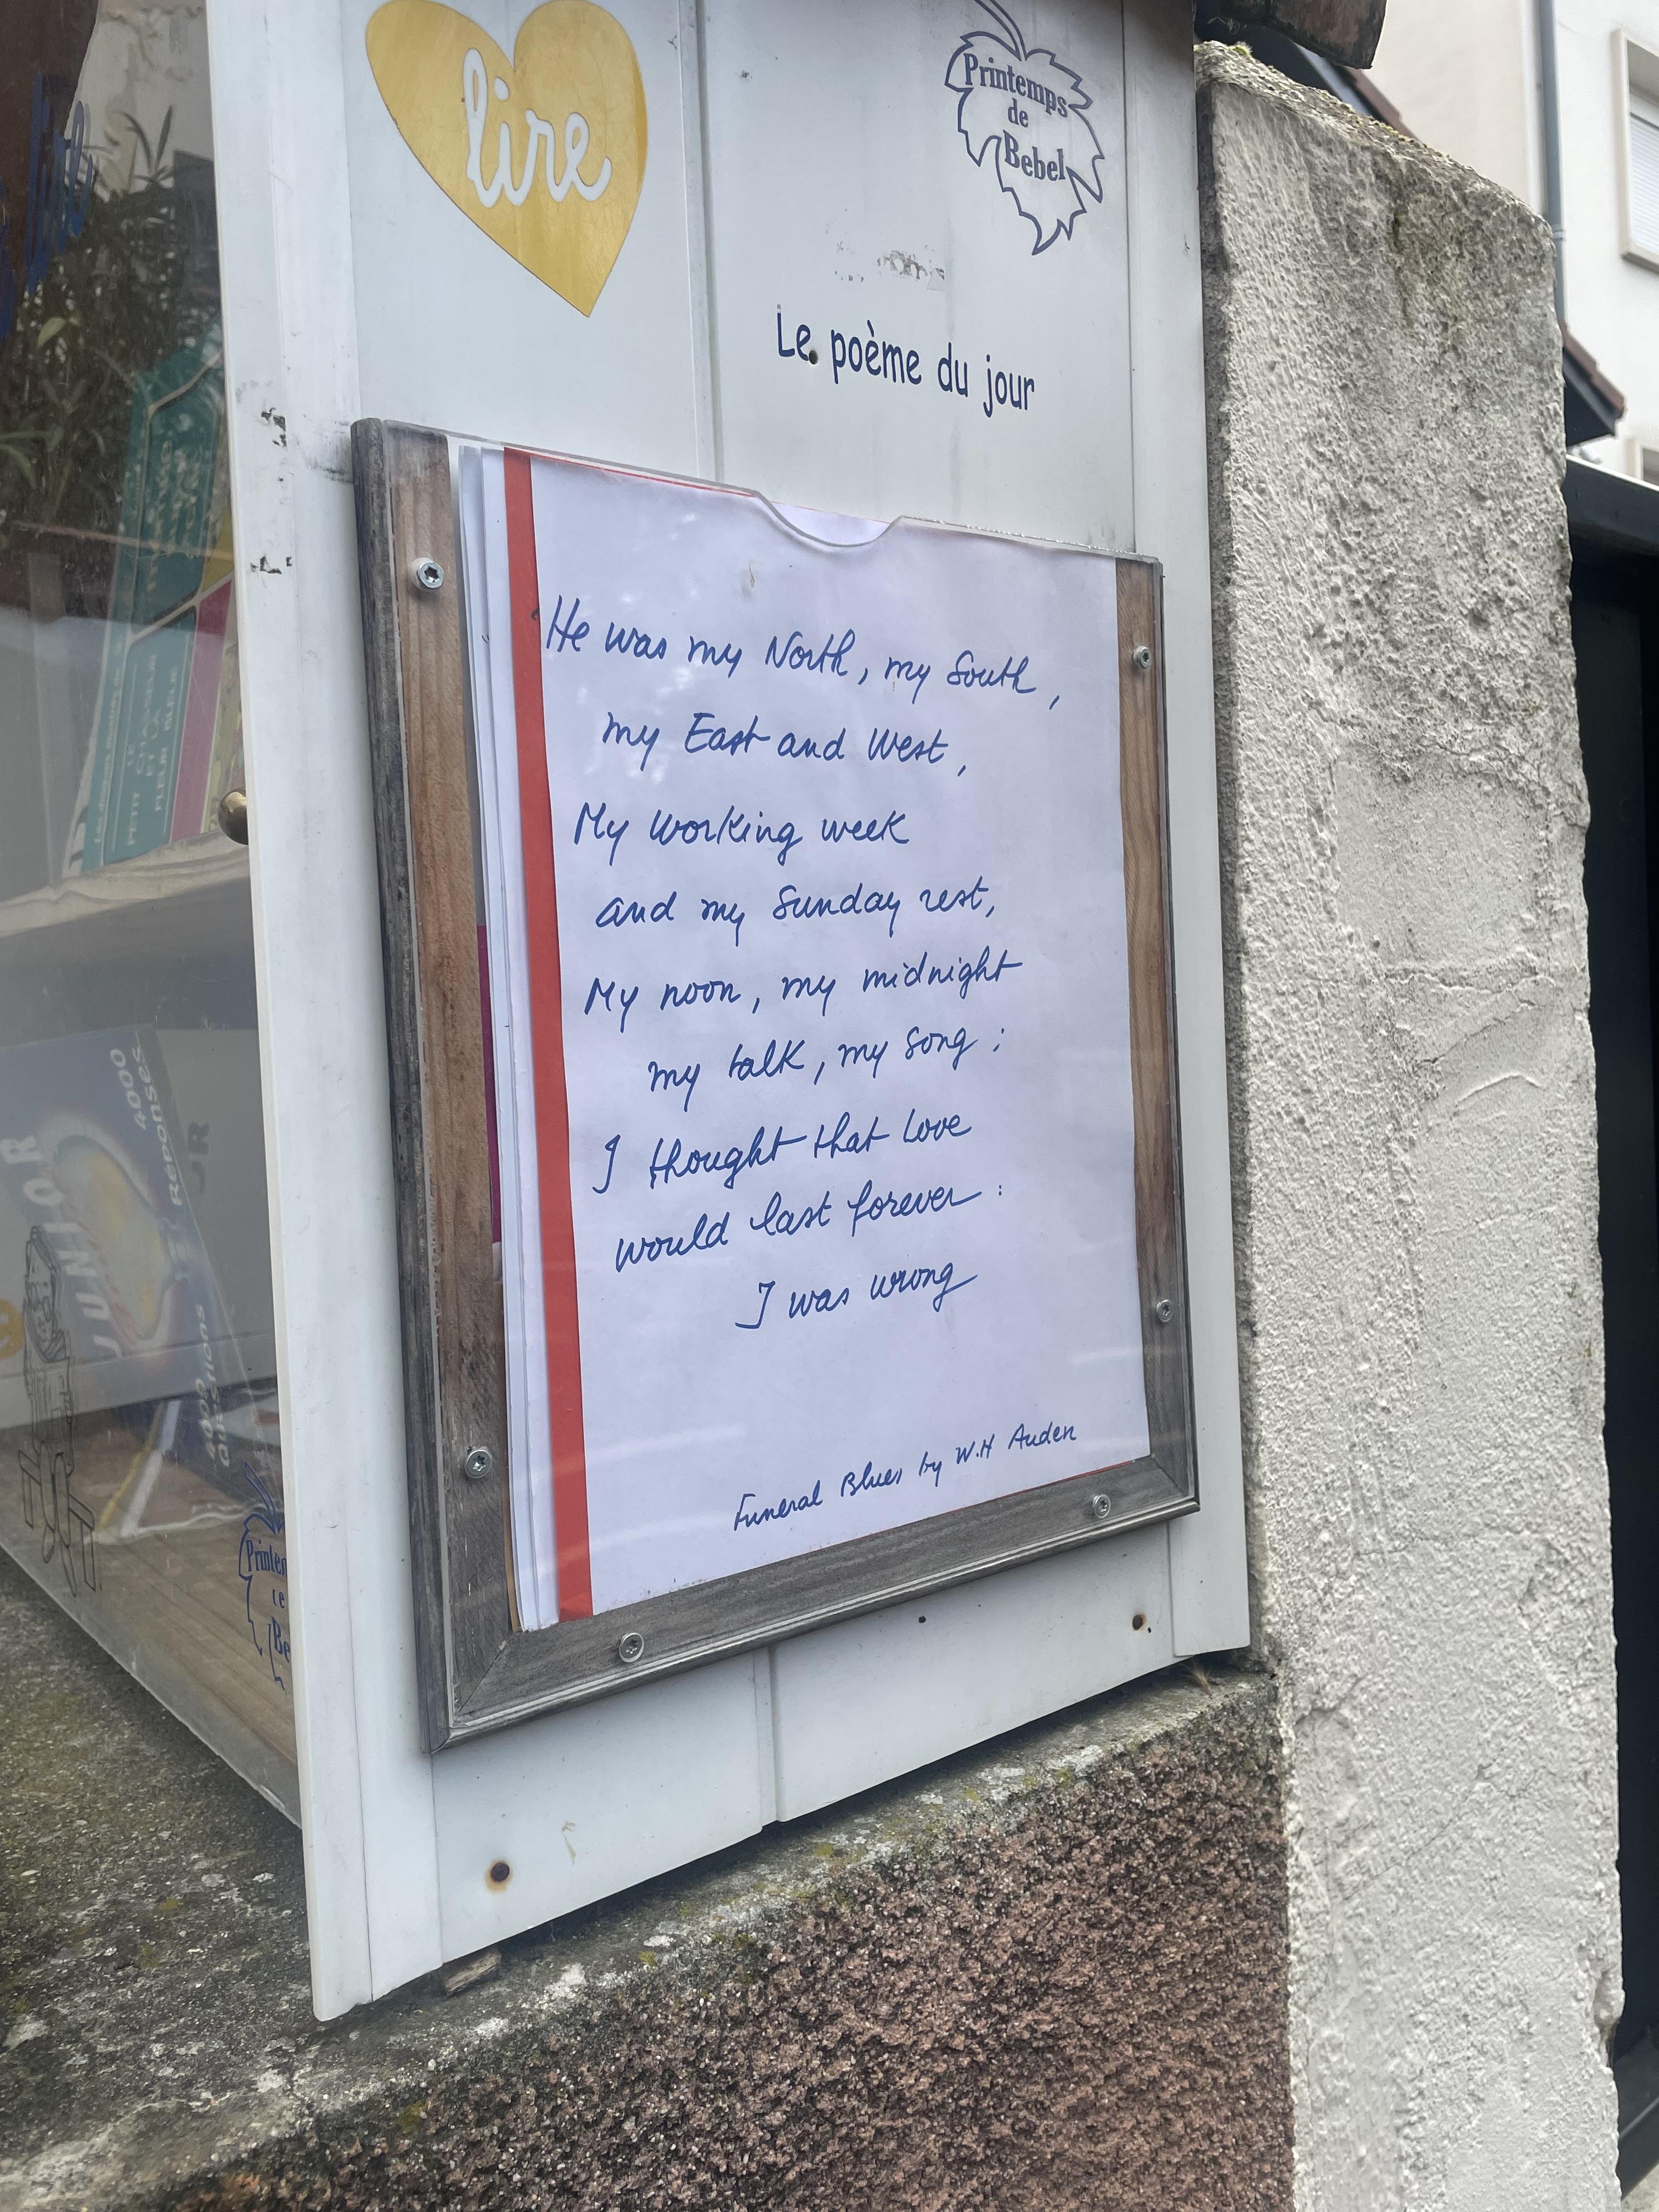 lire
Printemps
de
Bebel
Le poème du jour
He was my North, my South,
my East and West,
My working week
and my Sunday rest,
My noon, my midnight
my talk, my song ;
I thought that love
would last forever :
I was wrong
Funeral Blues by W.H Auden
PETIT
FLEUR BLEUE
JUNIOR
4000
Réponses
4000
Questions
Be